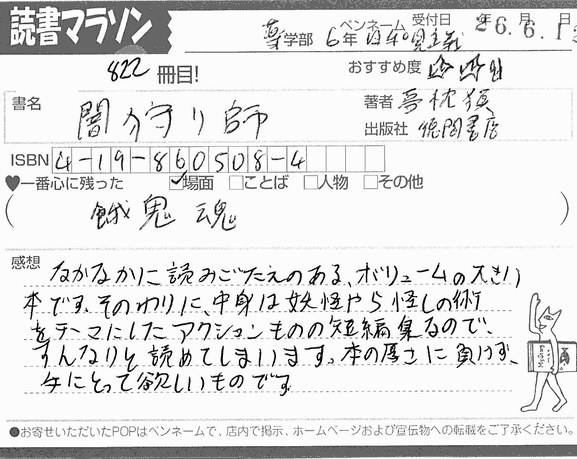 読書マラソン
薬学部 6年 ペンネーム 日和見主義 受付日 26.6.13
822冊目! おすすめ度
書名 闇狩り師 著者 夢枕獏
出版社 徳間書店
ISBN 4-19-860508-4
♥一番心に残った ☑場面 □ことば □人物 □その他
(餓鬼魂)
感想 なかなかに読みごたえのある、ボリュームの大きい
本です。そのわりに、中身は妖怪やら怪しの術
をテーマにしたアクションものの短編集なので、
すんなりと読めてしまいます。本の厚さに負けず、
手にとって欲しいものです。
●お寄せいただいたPOPはペンネームで、店内で掲示、ホームページおよび宣伝物への転載をご了承ください。